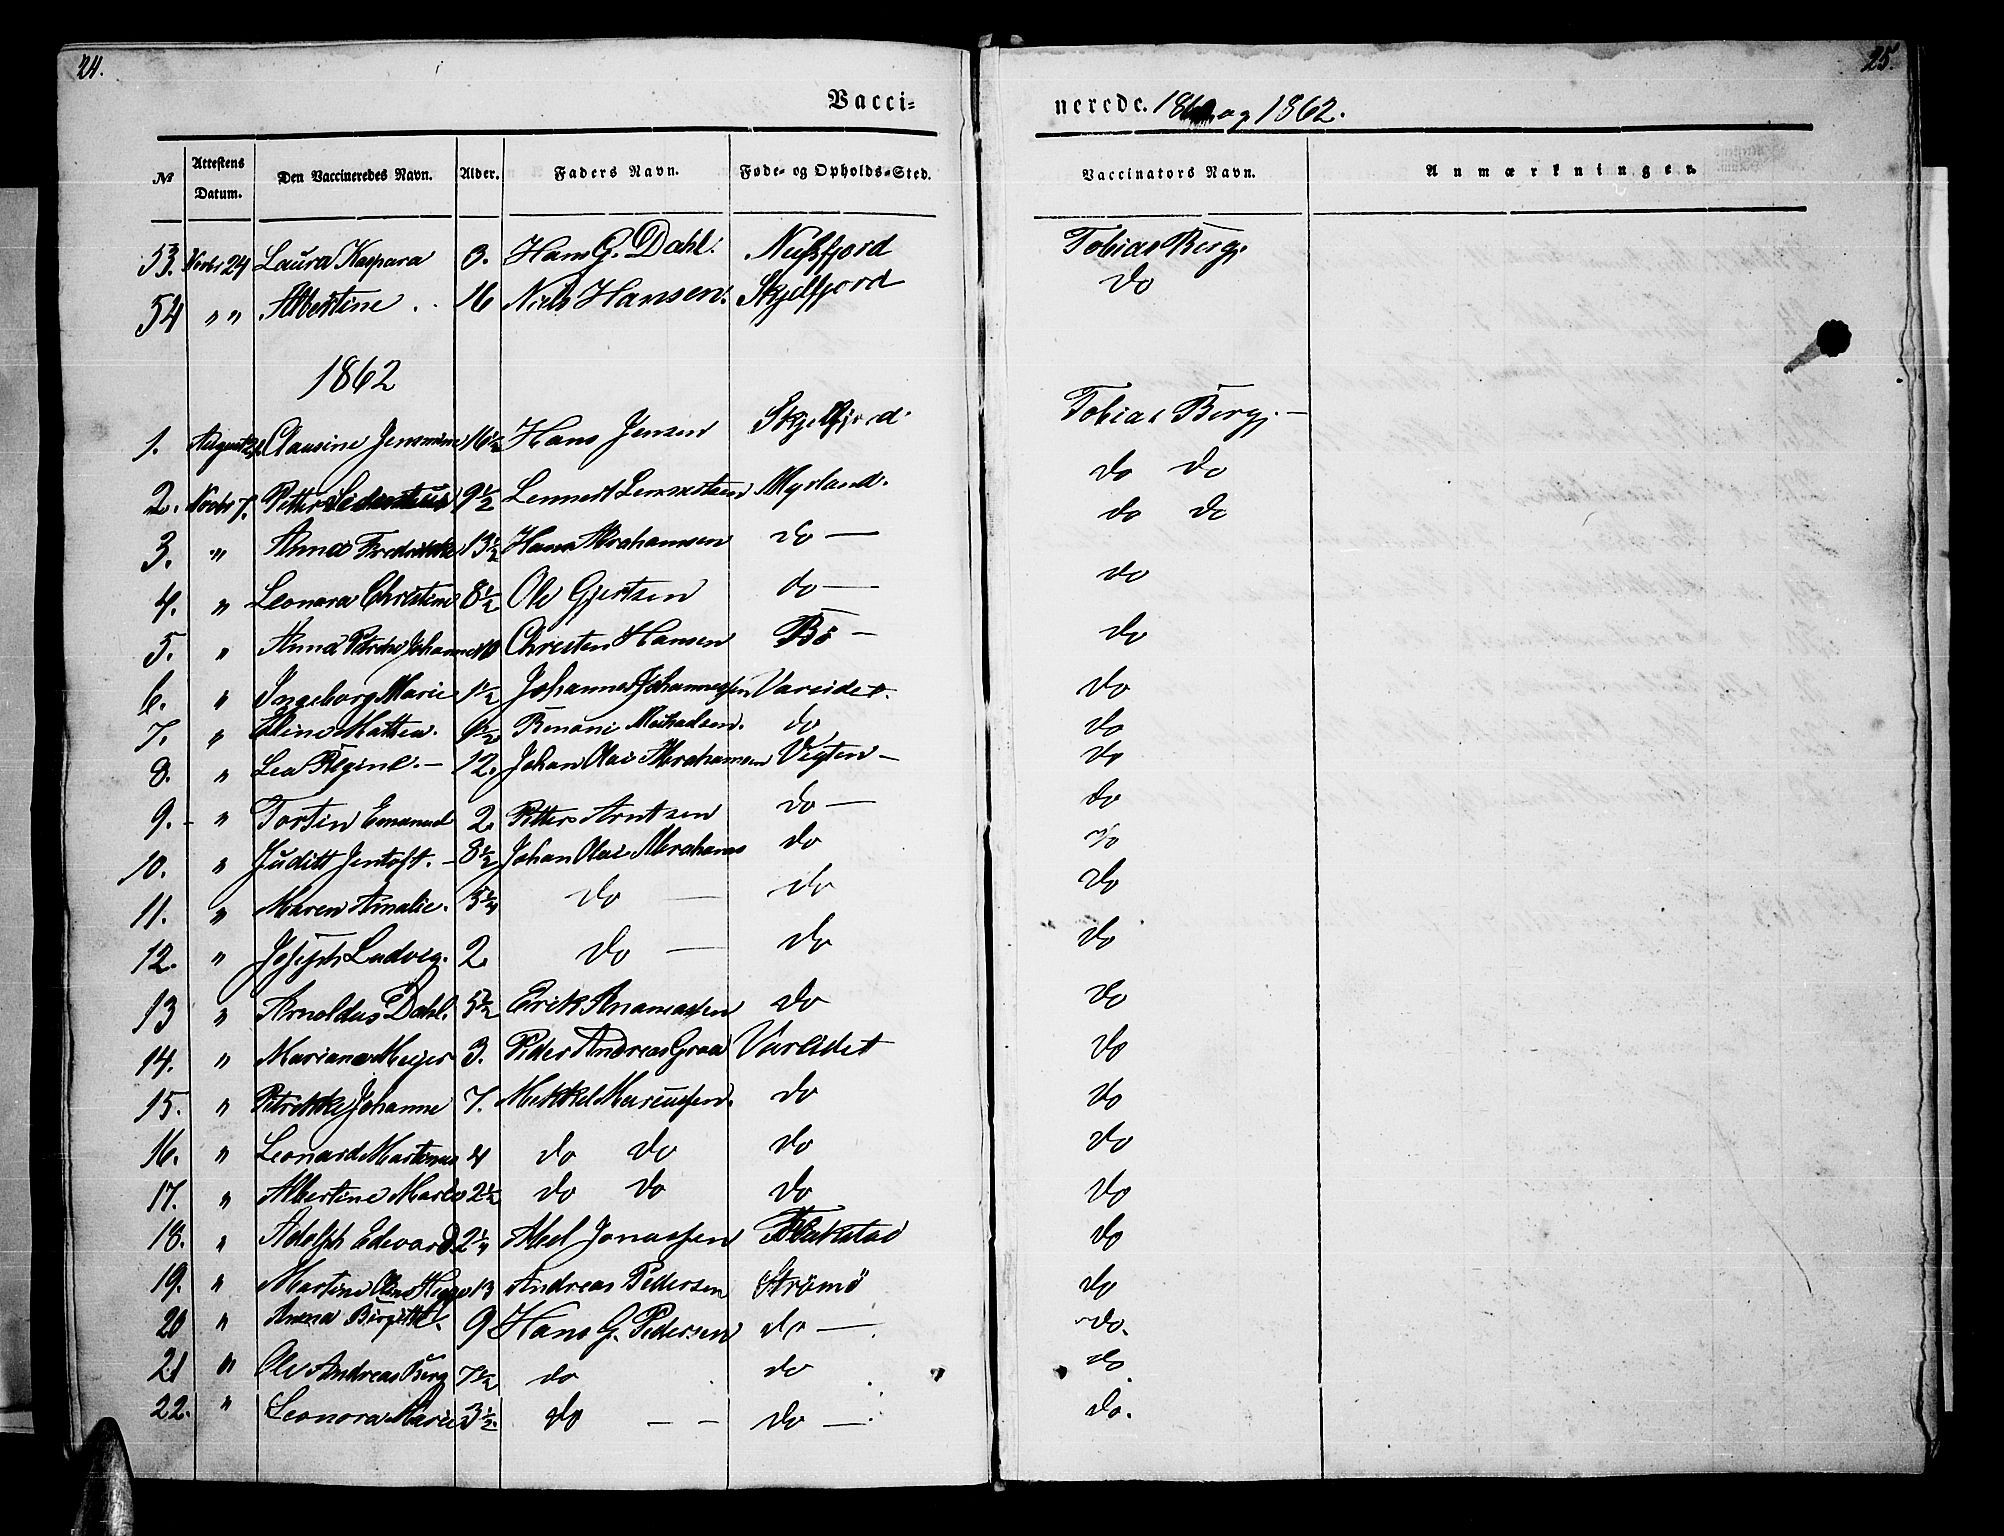 24.
25.
Vacci-
nerede. 18 og 1862.
No
Attestens Datum.
Den Vaccineredes Navn.
Alder.
Faders Navn.
Føde- og Opholds-Sted.
Vaccinators Navn.
Anmærkninger.
53. Novbr 24 Laura Kaspara 3. Hans G. Dahl. Nusfjord Tobias Berg.
54 " " Albertine . 16 Niels Hansen. Skjelfjord do
1862
1. August Clausine Jensmine 16½ Hans Jensen Skjelfjord. Tobias Berg. —
2. Novbr 7. Petter 9½ Lennert Lennertsen Myrland. do do
3. " Anna Fredrikke 13½ Hans Abrahamsen do — do do
4. " Leonora Christine 8½ Ole Gjertsen do — do
5. " Anna Petrine Johanne 10 Christen Hansen Bö — do
6. " Ingeborg Marie 1½ Johannes Johannessen Vareidet. do
7. " Eline Mattea. Benoni Michaelsen. do do
8. " Lea Regine. — 12. Johan Olai Abrahamsen Vigten — do
9. - " Torsten Emanuel 2. Petter Arntsen do — do
10. " Juditt Jentoft. — 8½ Johan Olai Abrahams do do
11. " Maren Amalie. 5¼ do — do do
12. " Joseph Ludvig. 2. do — do do
13 " Arnoldus Dahl. 5½ Erik Ananiassen do do
14. " Mariane Meyer 3. Peder Andreas Graa Vareidet do
15. " Petrikke Johanne 7. Mekkel Marcussen. do do
16. " Leonard Martinus 4 do do do do
17. " Albertine Marie 2½ do do do do
18. " Adolph Edevard. 2¼ Abel Jonassen Flakstad do
19. " Martine Oline 13 Andreas Pedersen Strömö do
20 " Anna Birgitte. 9 Hans G. Pedersen do — do.
21 " Ole Andreas Berg 7½ do do do.
22. " Leonora Marie 3½. do — — do — do.